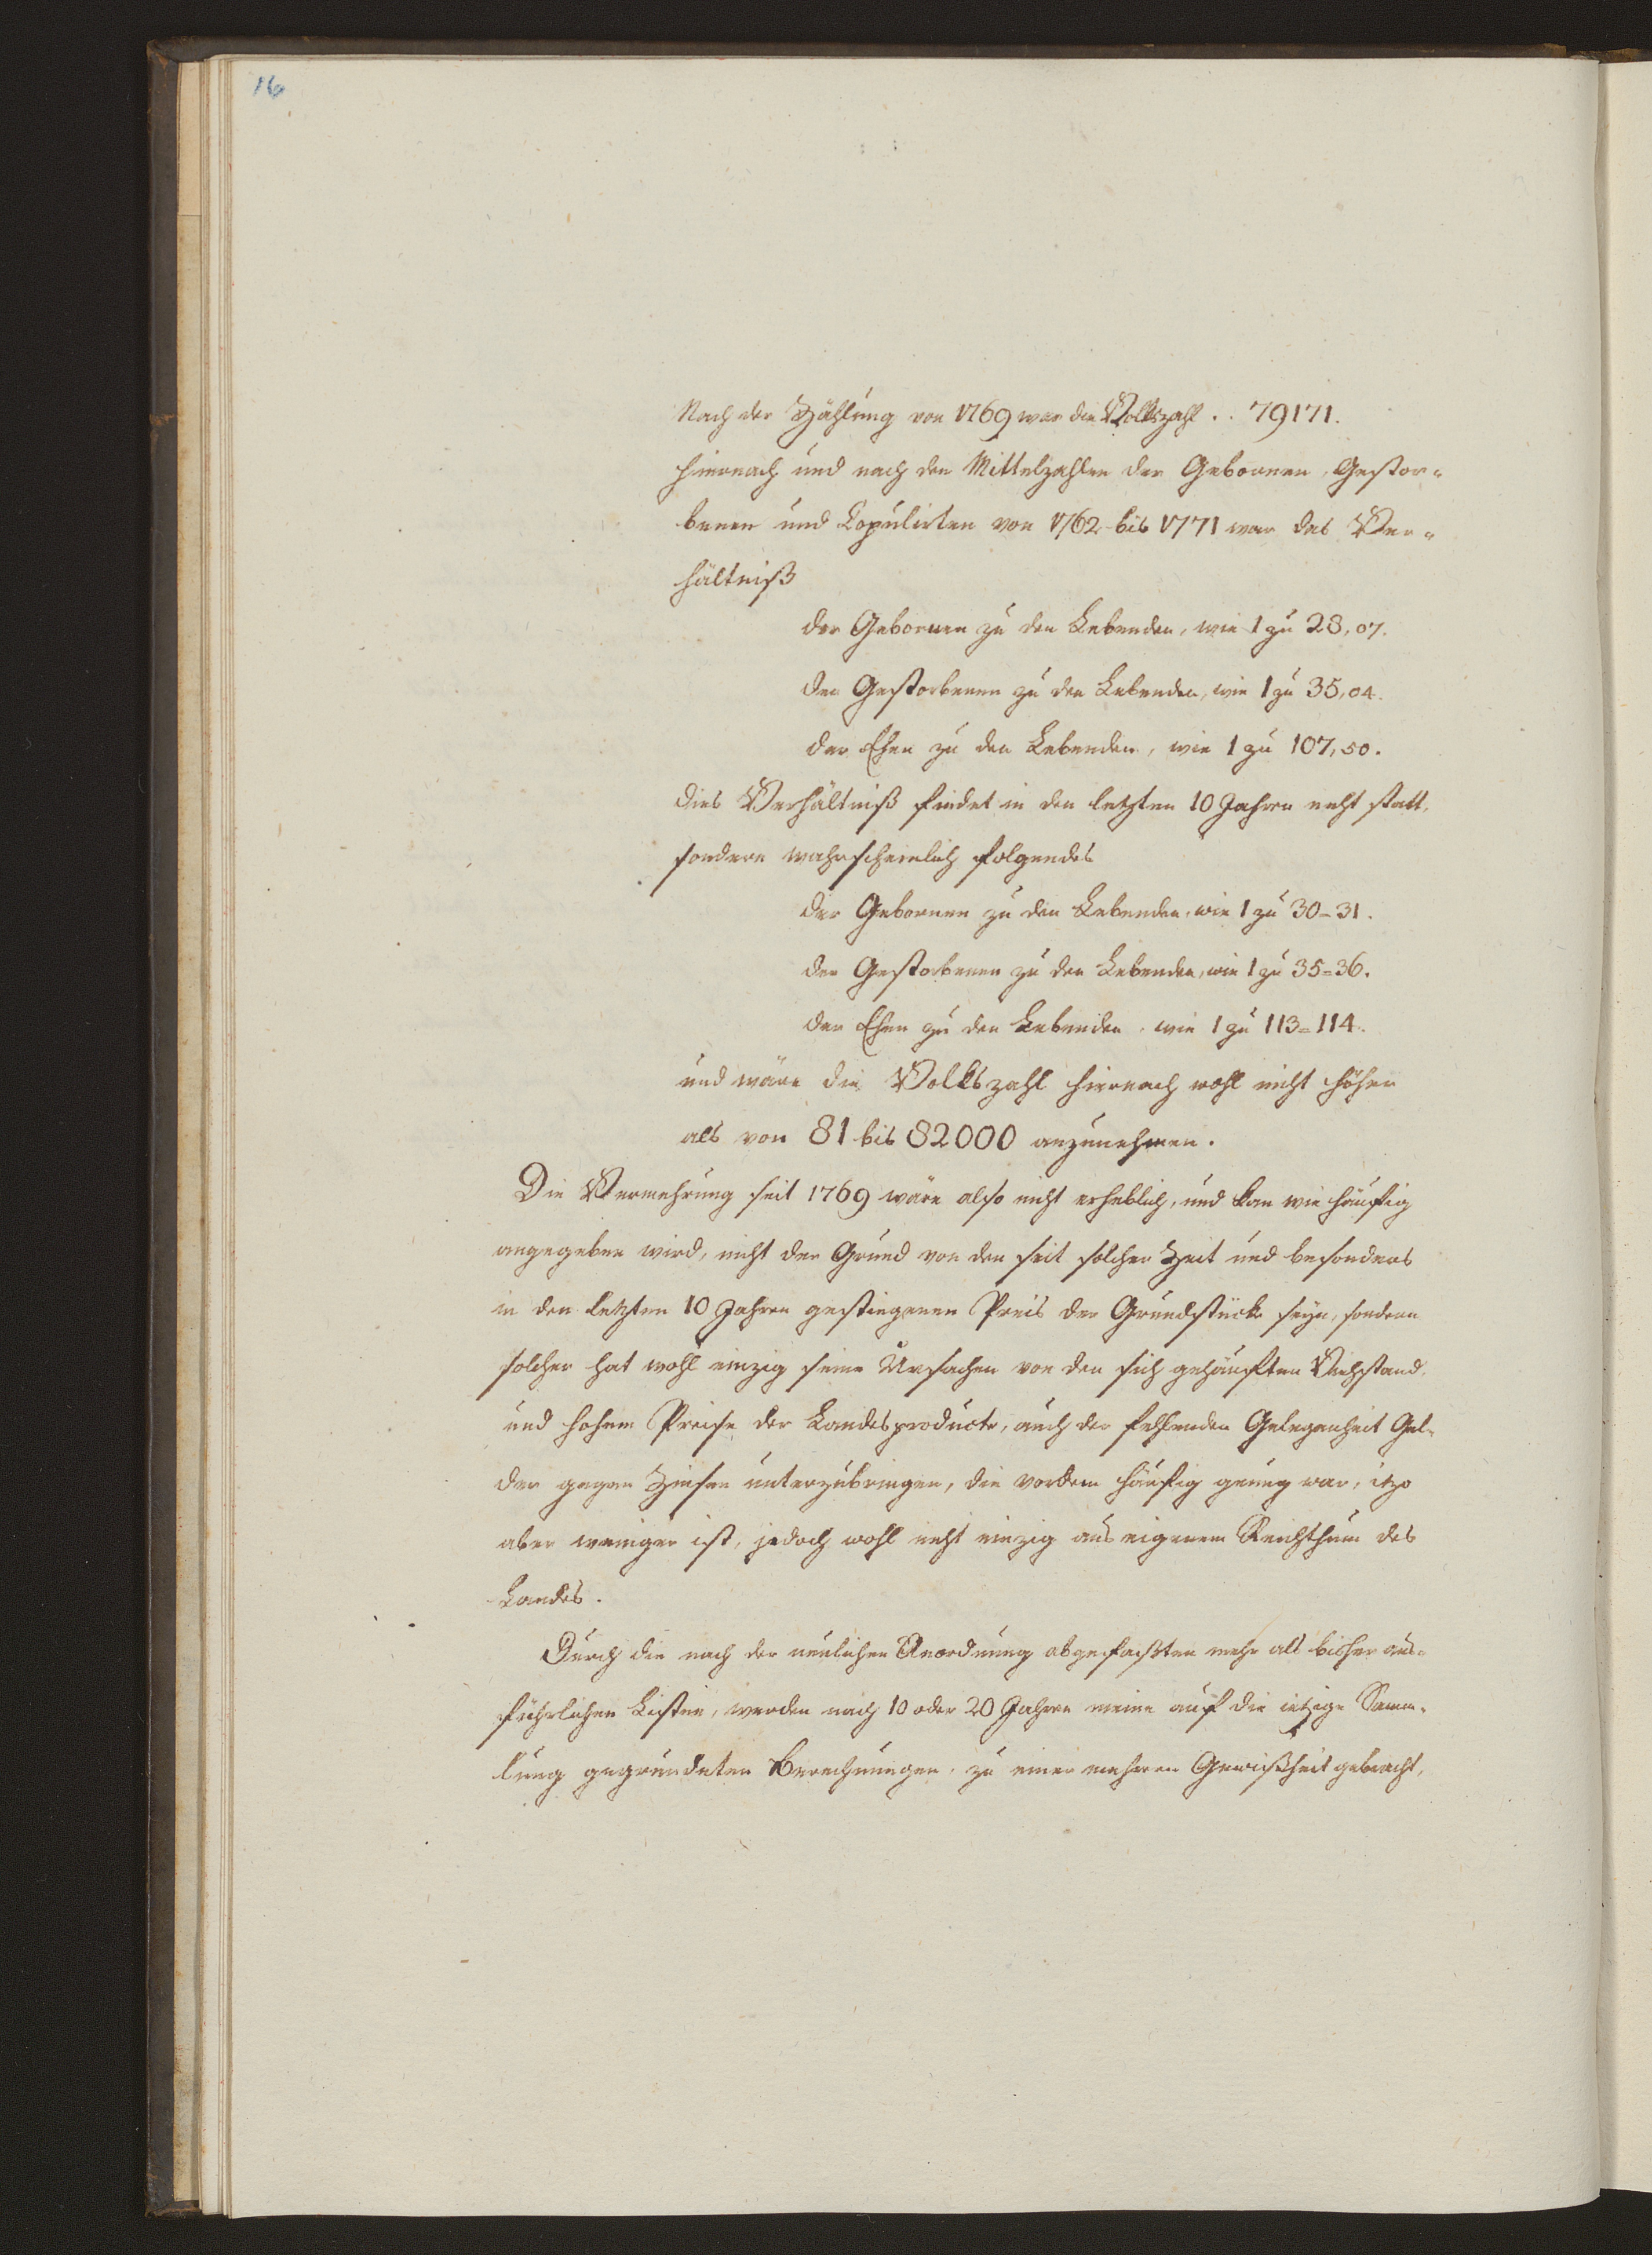 16
Nach der Zählung von 1769 war die Volkszahl . . 79171.
hiernach und nach den Mittelzahlen der Gebornen, Gestor-
benen und Copulirten von 1762 bis 1771 war das Ver-
hältniß
der Gebornen zu den Lebenden, wie 1 zu 28,07.
der Gestorbenen zu den Lebenden, wie 1 zu 35,04.
der Ehen zu den Lebenden, wie 1 zu 107,50.
dies Verhältniß findet in den letzten 10 Jahren nicht statt,
sondern wahrscheinlich folgendes
der Gebornen zu den Lebenden, wie 1 zu 30-31.
der Gestorbenen zu den Lebenden, wie 1 zu 35=36.
der Ehen zu den Lebenden, wie 1 zu 113=114.
und wäre die Volkszahl hiernach wohl nicht höher
als von 81 bis 82000 anzunehmen.
Die Vermehrung seit 1769 wäre also nicht erheblich, und kan wie häufig
angegeben wird, nicht der Grund von den seit solcher Zeit und besonders
in den letzten 10 Jahren gestiegenen Preis der Grundstücke seyn, sondern
solcher hat wohl einzig seine Ursachen von den sich gehäuften Viehstand,
und hohem Preise der Landesproducte, auch der fehlenden Gelegenheit Gel-
der gegen Zinsen unterzubringen, die vordem häufig genug war, itzo
aber weniger ist, jedoch wohl nicht einzig aus eigenem Reichthum des
Landes.
Durch die nach der neulichen Anordnung abgefaßten mehr als bisher aus-
führlichen Listen, werden nach 10 oder 20 Jahren meine auf die ietzige Samm-
lung gegründeten Berechnungen, zu einer mehreren Gewißheit gebracht,